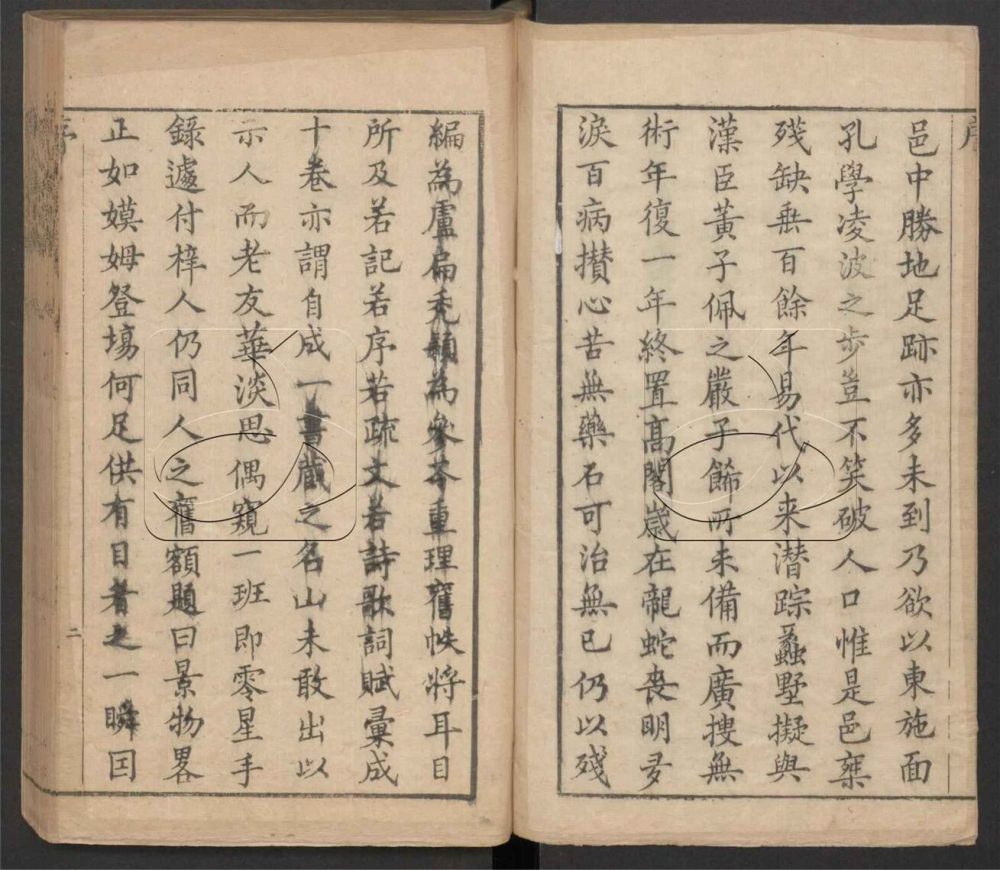 邑中勝地足跡亦多未到乃欲以東施面
孔學凌波之步豈不笑破人口惟是邑乘
殘缺垂百餘年易代以来潜踪蠡墅擬與
漢臣黃子佩之嚴子餙所未備而廣搜無
術年復一年終置高閣歲在龍蛇喪明多
淚百病攢心苦無藥石可治無已仍以殘
編為盧扁禿頴為參苓重理舊帙将耳目
所及若記若序若疏文若詩歌詞賦彙成
十卷亦謂自成一書藏之名山未敢出以
示人而老友華淡思偶窺一班即零星手
錄遽付梓人仍同人之舊額題曰景物畧
正如嫫姆登塲何足供有目者之一瞬囙
序
二